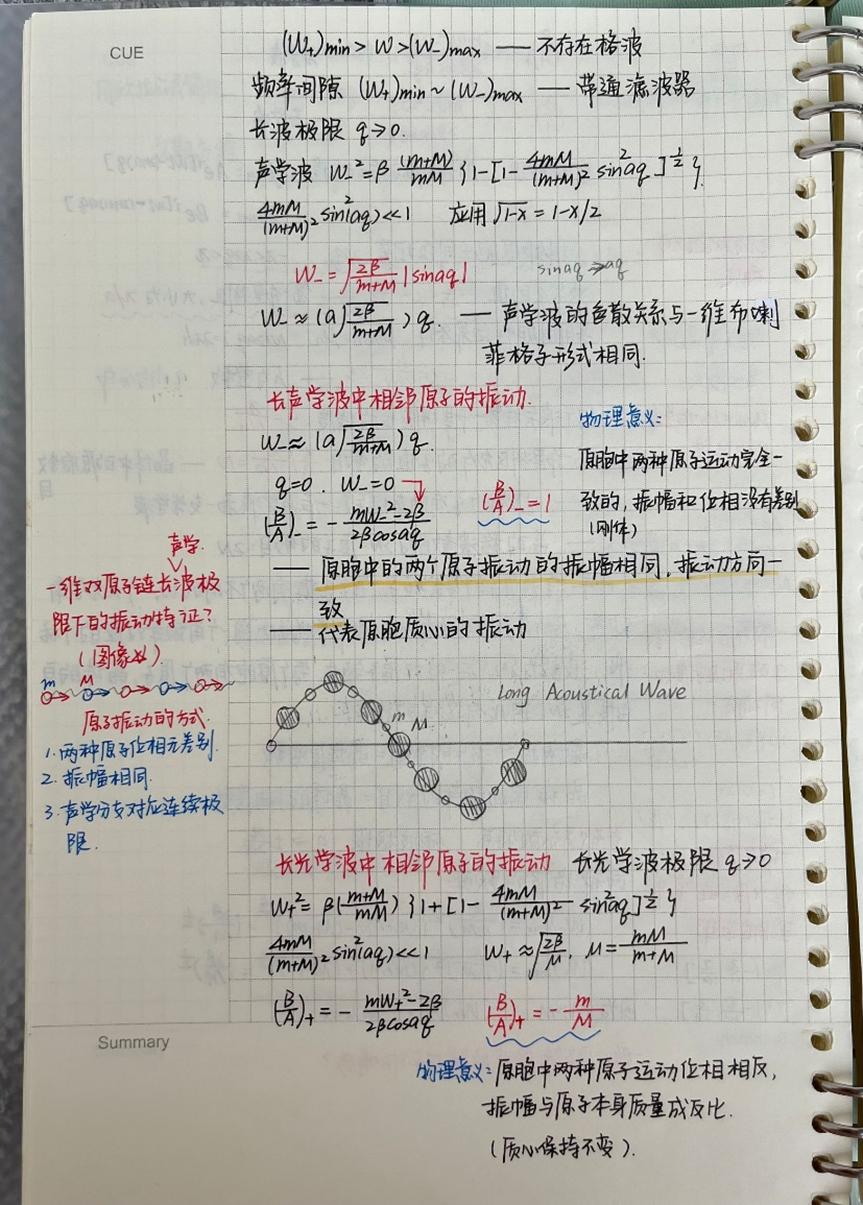 CUE
(W₊)min > W > (W₋)max —— 不存在格波
频率间隙 (W₊)min ~ (W₋)max —— 带通滤波器
长波极限 q→0.
声学波 W₋² = β (m+M)/mM {1-[1- 4mM/(m+M)² sin²aq]^½}.
4mM/(m+M)² sin²(aq) << 1 应用 √1-x = 1-x/2
W₋ = √(2β/m+M) |sinaq|
sinaq → aq
W₋ ≈ (a√(2β/m+M)) q. —— 声学波的色散关系与一维布喇
菲格子形式相同.
长声学波中相邻原子的振动.
W₋ ≈ (a√(2β/m+M)) q.
q=0. W₋=0
(B/A)₋ = - mW₋²-2β/2βcosaq
(B/A)₋ = 1
物理意义:
原胞中两种原子运动完全一
致的, 振幅和位相没有差别
(刚体)
—— 原胞中的两个原子振动的振幅相同, 振动方向一
致
—— 代表原胞质心的振动
声学
一维双原子链长波极
限下的振动特征?
(图像如)
m M
原子振动的方式.
1. 两种原子位相无差别.
2. 振幅相同.
3. 声学分支对应连续极
限.
Long Acoustical Wave
m M
长光学波中相邻原子的振动 长光学波极限 q→0
W₊² = β(m+M/mM) {1+[1- 4mM/(m+M)² sin²aq]^½}
4mM/(m+M)² sin²(aq) << 1 W₊ ≈ √(2β/μ), μ = mM/m+M
(B/A)₊ = - mW₊²-2β/2βcosaq (B/A)₊ = - m/M
Summary
物理意义: 原胞中两种原子运动位相相反,
振幅与原子本身质量成反比.
(质心保持不变).